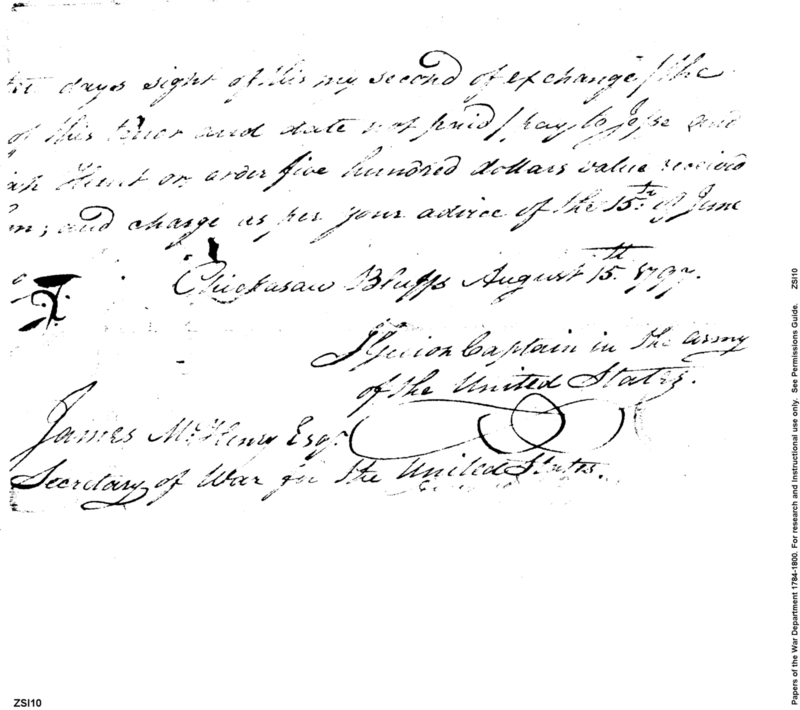 days sight of this my second of exchange / the
of this tenor and date not paid / pay to Jesse and
Hunt or order five hundred dollars value received
and charge as per your advice of the 15th of June
Chickasaw Bluffs August 15th 1797.
I Guion Captain in the army
of the United States.
James McHenry Esqr.
Secretary of War for the United States.
ZSI10
Papers of the War Department 1784-1800. For research and instructional use only. See Permissions Guide. ZSI10